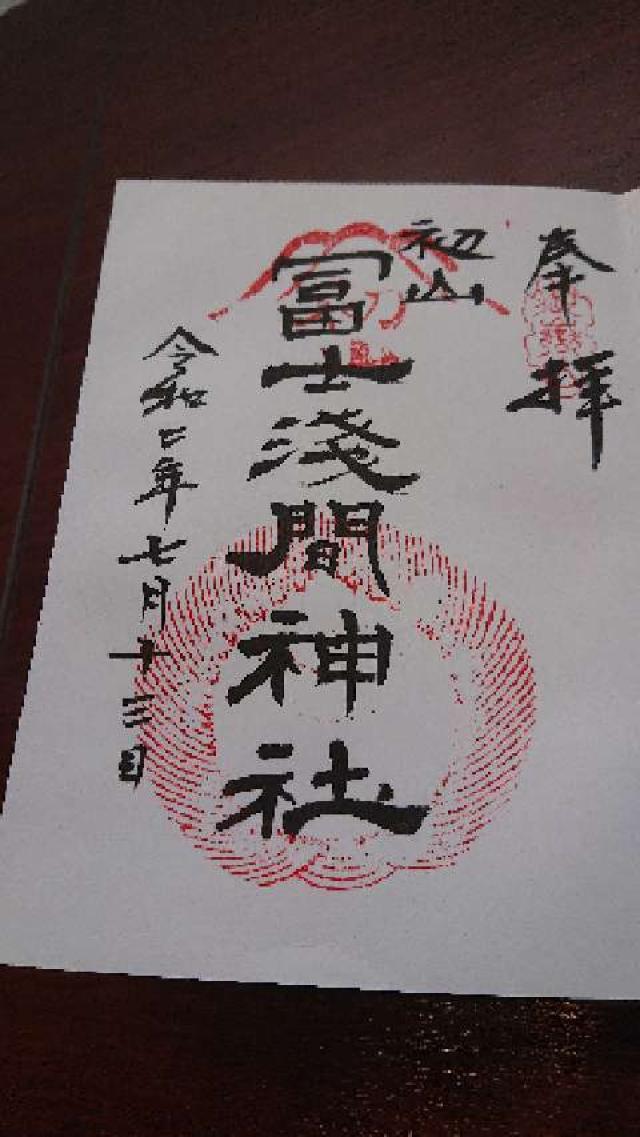 奉拝
初山
冨士淺間神社
令和二年七月十三日